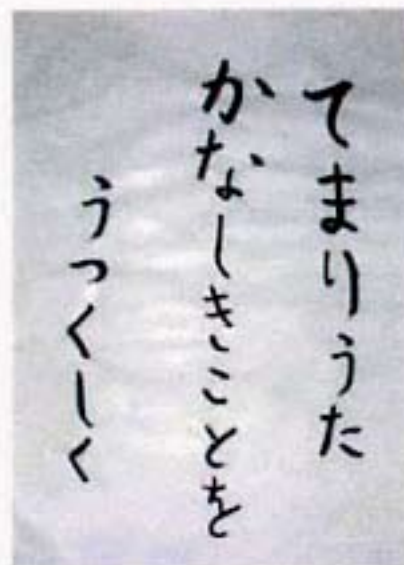 てまりうた
かなしきことを
うつくしく